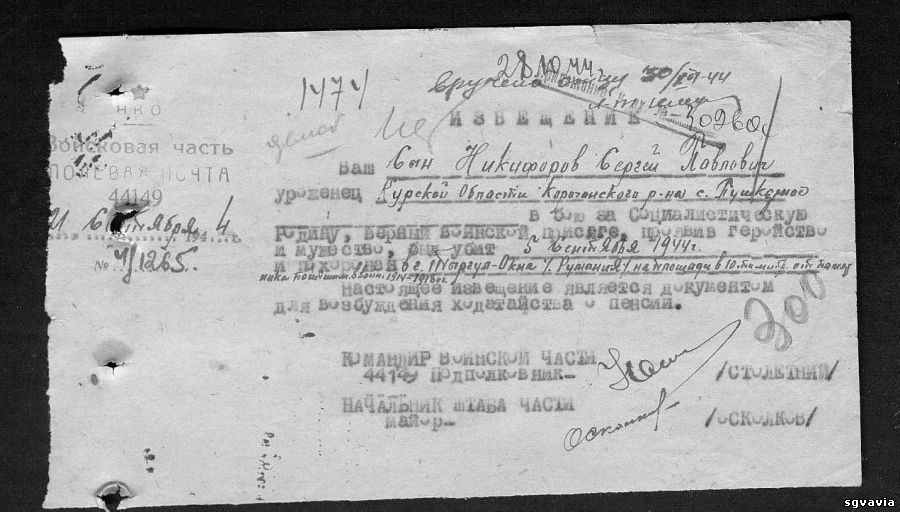 28.10.44
1474
вручено
30/
-44
НКО
ИЗВЕЩЕНИЕ
Войсковая часть
ПОЛЕВАЯ ПОЧТА
44149
Ваш сын Никифоров Сергей Павлович
уроженец Курской Области Корочанского р-на с. Пушкарное
21 Сентября 194 4
№ 4/1265.
в бою за Социалистическую
Родину, верный воинской присяге, проявив геройство
и мужество, был убит 5 Сентября 1944г.
и похоронен в г. Тыргул-Окна /Румыния/ на площади в 10 ти м.
Настоящее извещение является документом
для возбуждения ходатайства о пенсии.
300
КОМАНДИР ВОИНСКОЙ ЧАСТИ
44149 ПОДПОЛКОВНИК- /СТОЛЕТНИЙ/
НАЧАЛЬНИК ШТАБА ЧАСТИ
майор- /ОСКОЛКОВ/
sgvavia